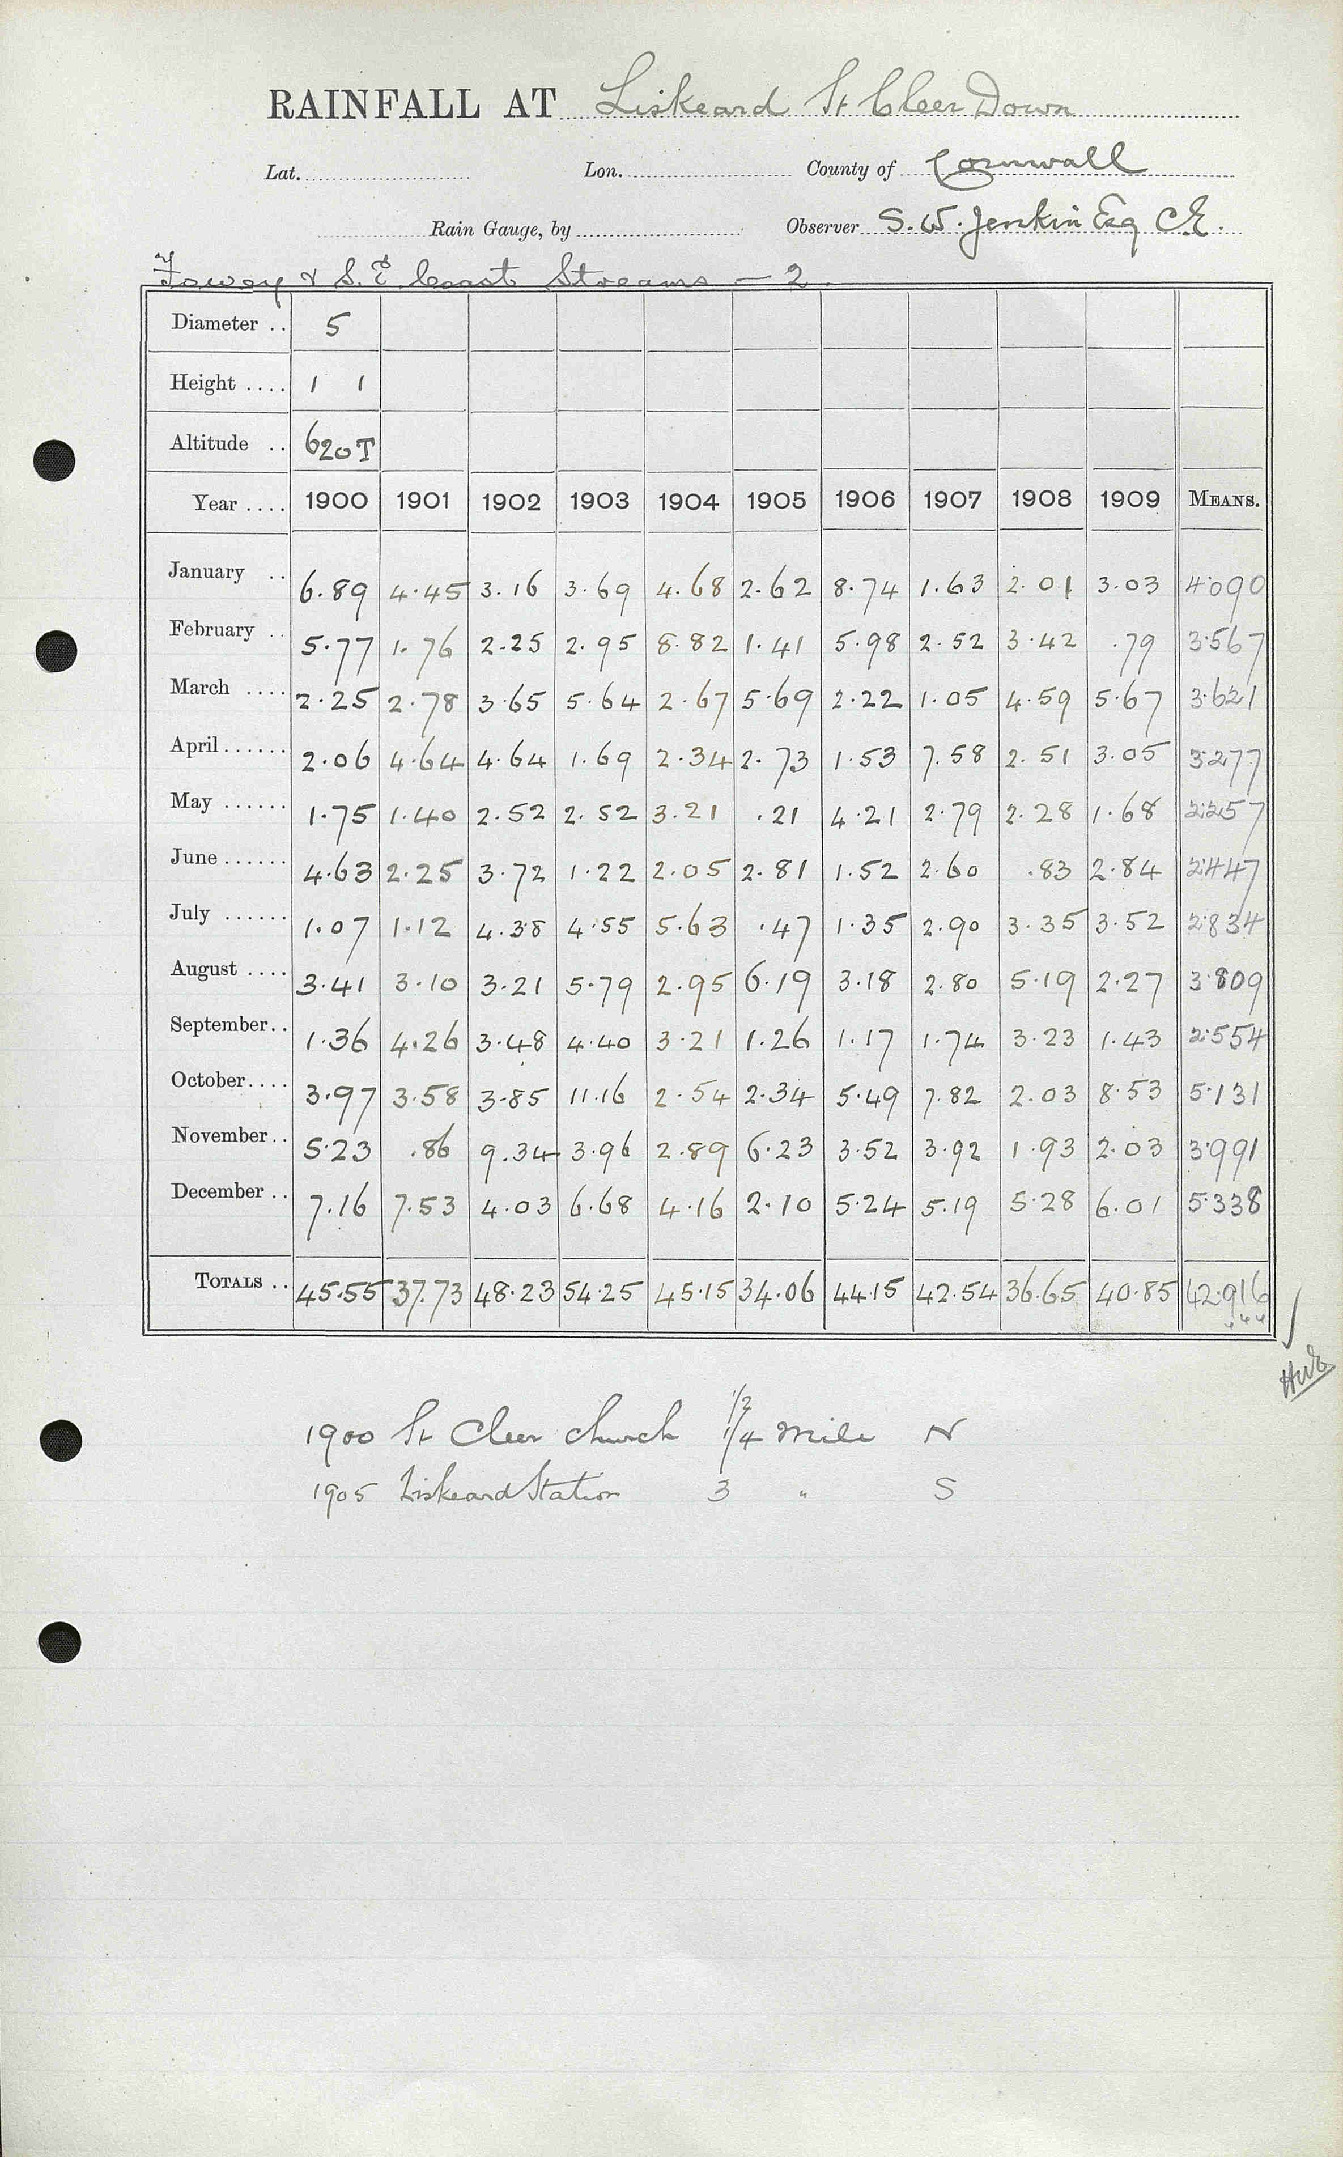 RAINFALL AT Liskeard St Cleer Down
Lat. Lon. County of Cornwall
Rain Gauge, by Observer S. W. Jenkin Esq C.E.
Fowey & S.E. Coast Streams - 2.
Diameter .. 5
Height .... 1 1
Altitude .. 620T
Year .... 1900 1901 1902 1903 1904 1905 1906 1907 1908 1909 MEANS.
January .. 6.89 4.45 3.16 3.69 4.68 2.62 8.74 1.63 2.01 3.03 4.090
February .. 5.77 1.76 2.25 2.95 8.82 1.41 5.98 2.52 3.42 .79 3.567
March .... 2.25 2.78 3.65 5.64 2.67 5.69 2.22 1.05 4.59 5.67 3.621
April ...... 2.06 4.64 4.64 1.69 2.34 2.73 1.53 7.58 2.51 3.05 3.277
May ...... 1.75 1.40 2.52 2.52 3.21 .21 4.21 2.79 2.28 1.68 2.257
June ...... 4.63 2.25 3.72 1.22 2.05 2.81 1.52 2.60 .83 2.84 2.447
July ...... 1.07 1.12 4.38 4.55 5.63 .47 1.35 2.90 3.35 3.52 2.834
August .... 3.41 3.10 3.21 5.79 2.95 6.19 3.18 2.80 5.19 2.27 3.809
September.. 1.36 4.26 3.48 4.40 3.21 1.26 1.17 1.74 3.23 1.43 2.554
October.... 3.97 3.58 3.85 11.16 2.54 2.34 5.49 7.82 2.03 8.53 5.131
November.. 5.23 .86 9.34 3.96 2.89 6.23 3.52 3.92 1.93 2.03 3.991
December .. 7.16 7.53 4.03 6.68 4.16 2.10 5.24 5.19 5.28 6.01 5.338
TOTALS .. 45.55 37.73 48.23 54.25 45.15 34.06 44.15 42.54 36.65 40.85 42.916
1900 St Cleer church 1/2 1/4 mile N
1905 Liskeard Station 3 " S